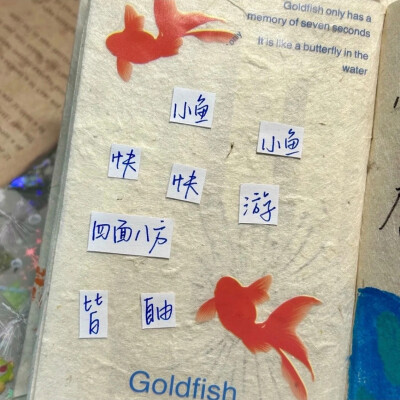 Goldfish only has a
memory of seven seconds
It is like a butterfly in the
water
小鱼
小鱼
快
快
游
四面八方
皆
自由
Goldfish